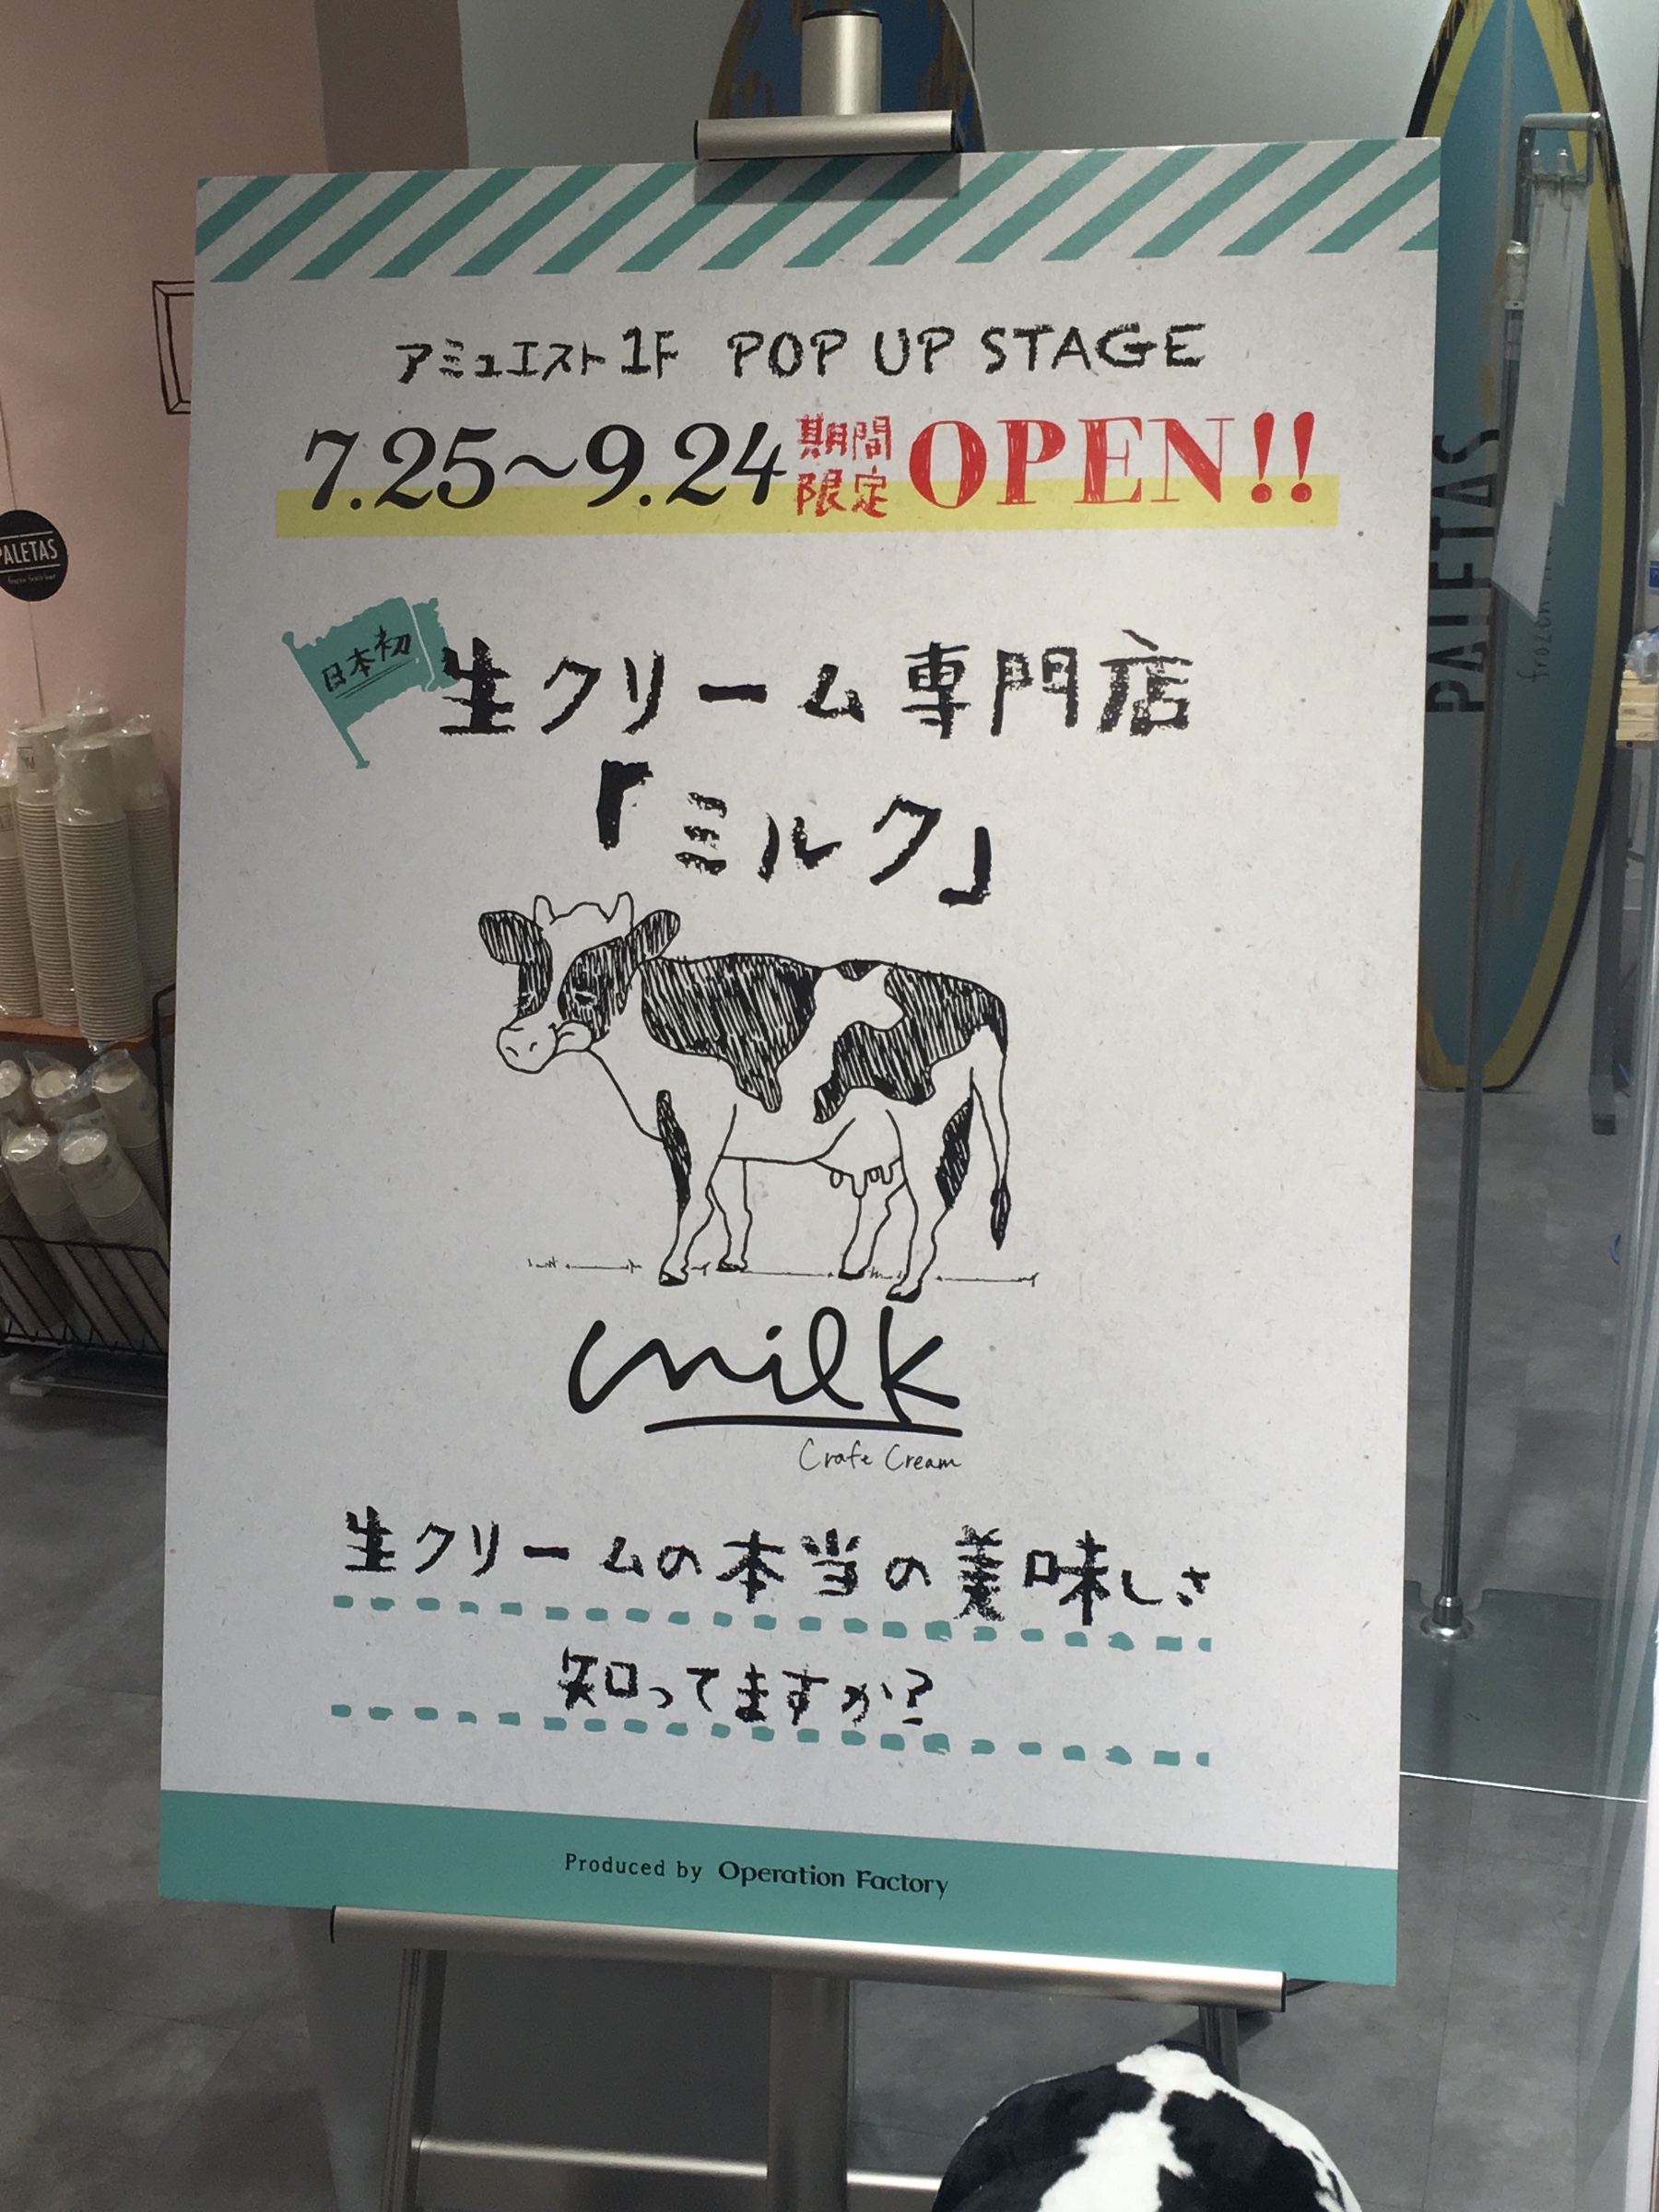 アミュエスト1F POP UP STAGE
7.25～9.24 期間限定 OPEN!!
日本初
生クリーム専門店
「ミルク」
milk
Crafe Cream
生クリームの本当の美味しさ
知ってますか?
Produced by Operation Factory
PALETAS
PALETAS
frozen